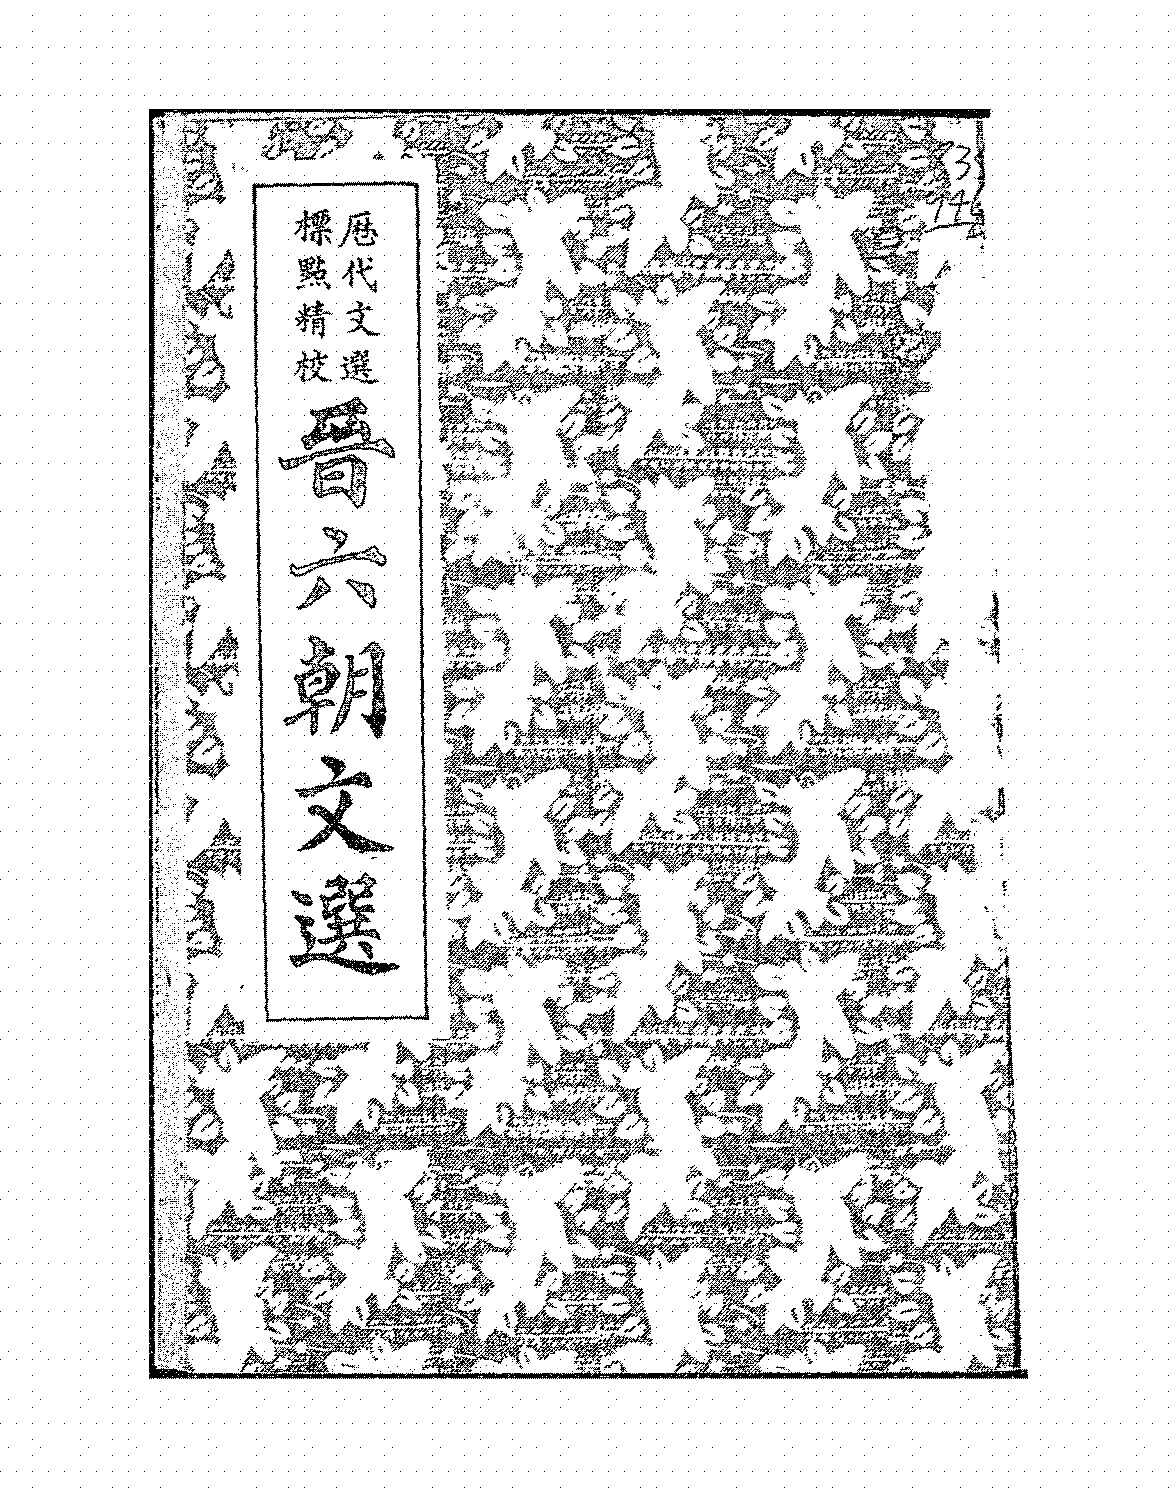 歷代文選
標點精校
晉六朝文選